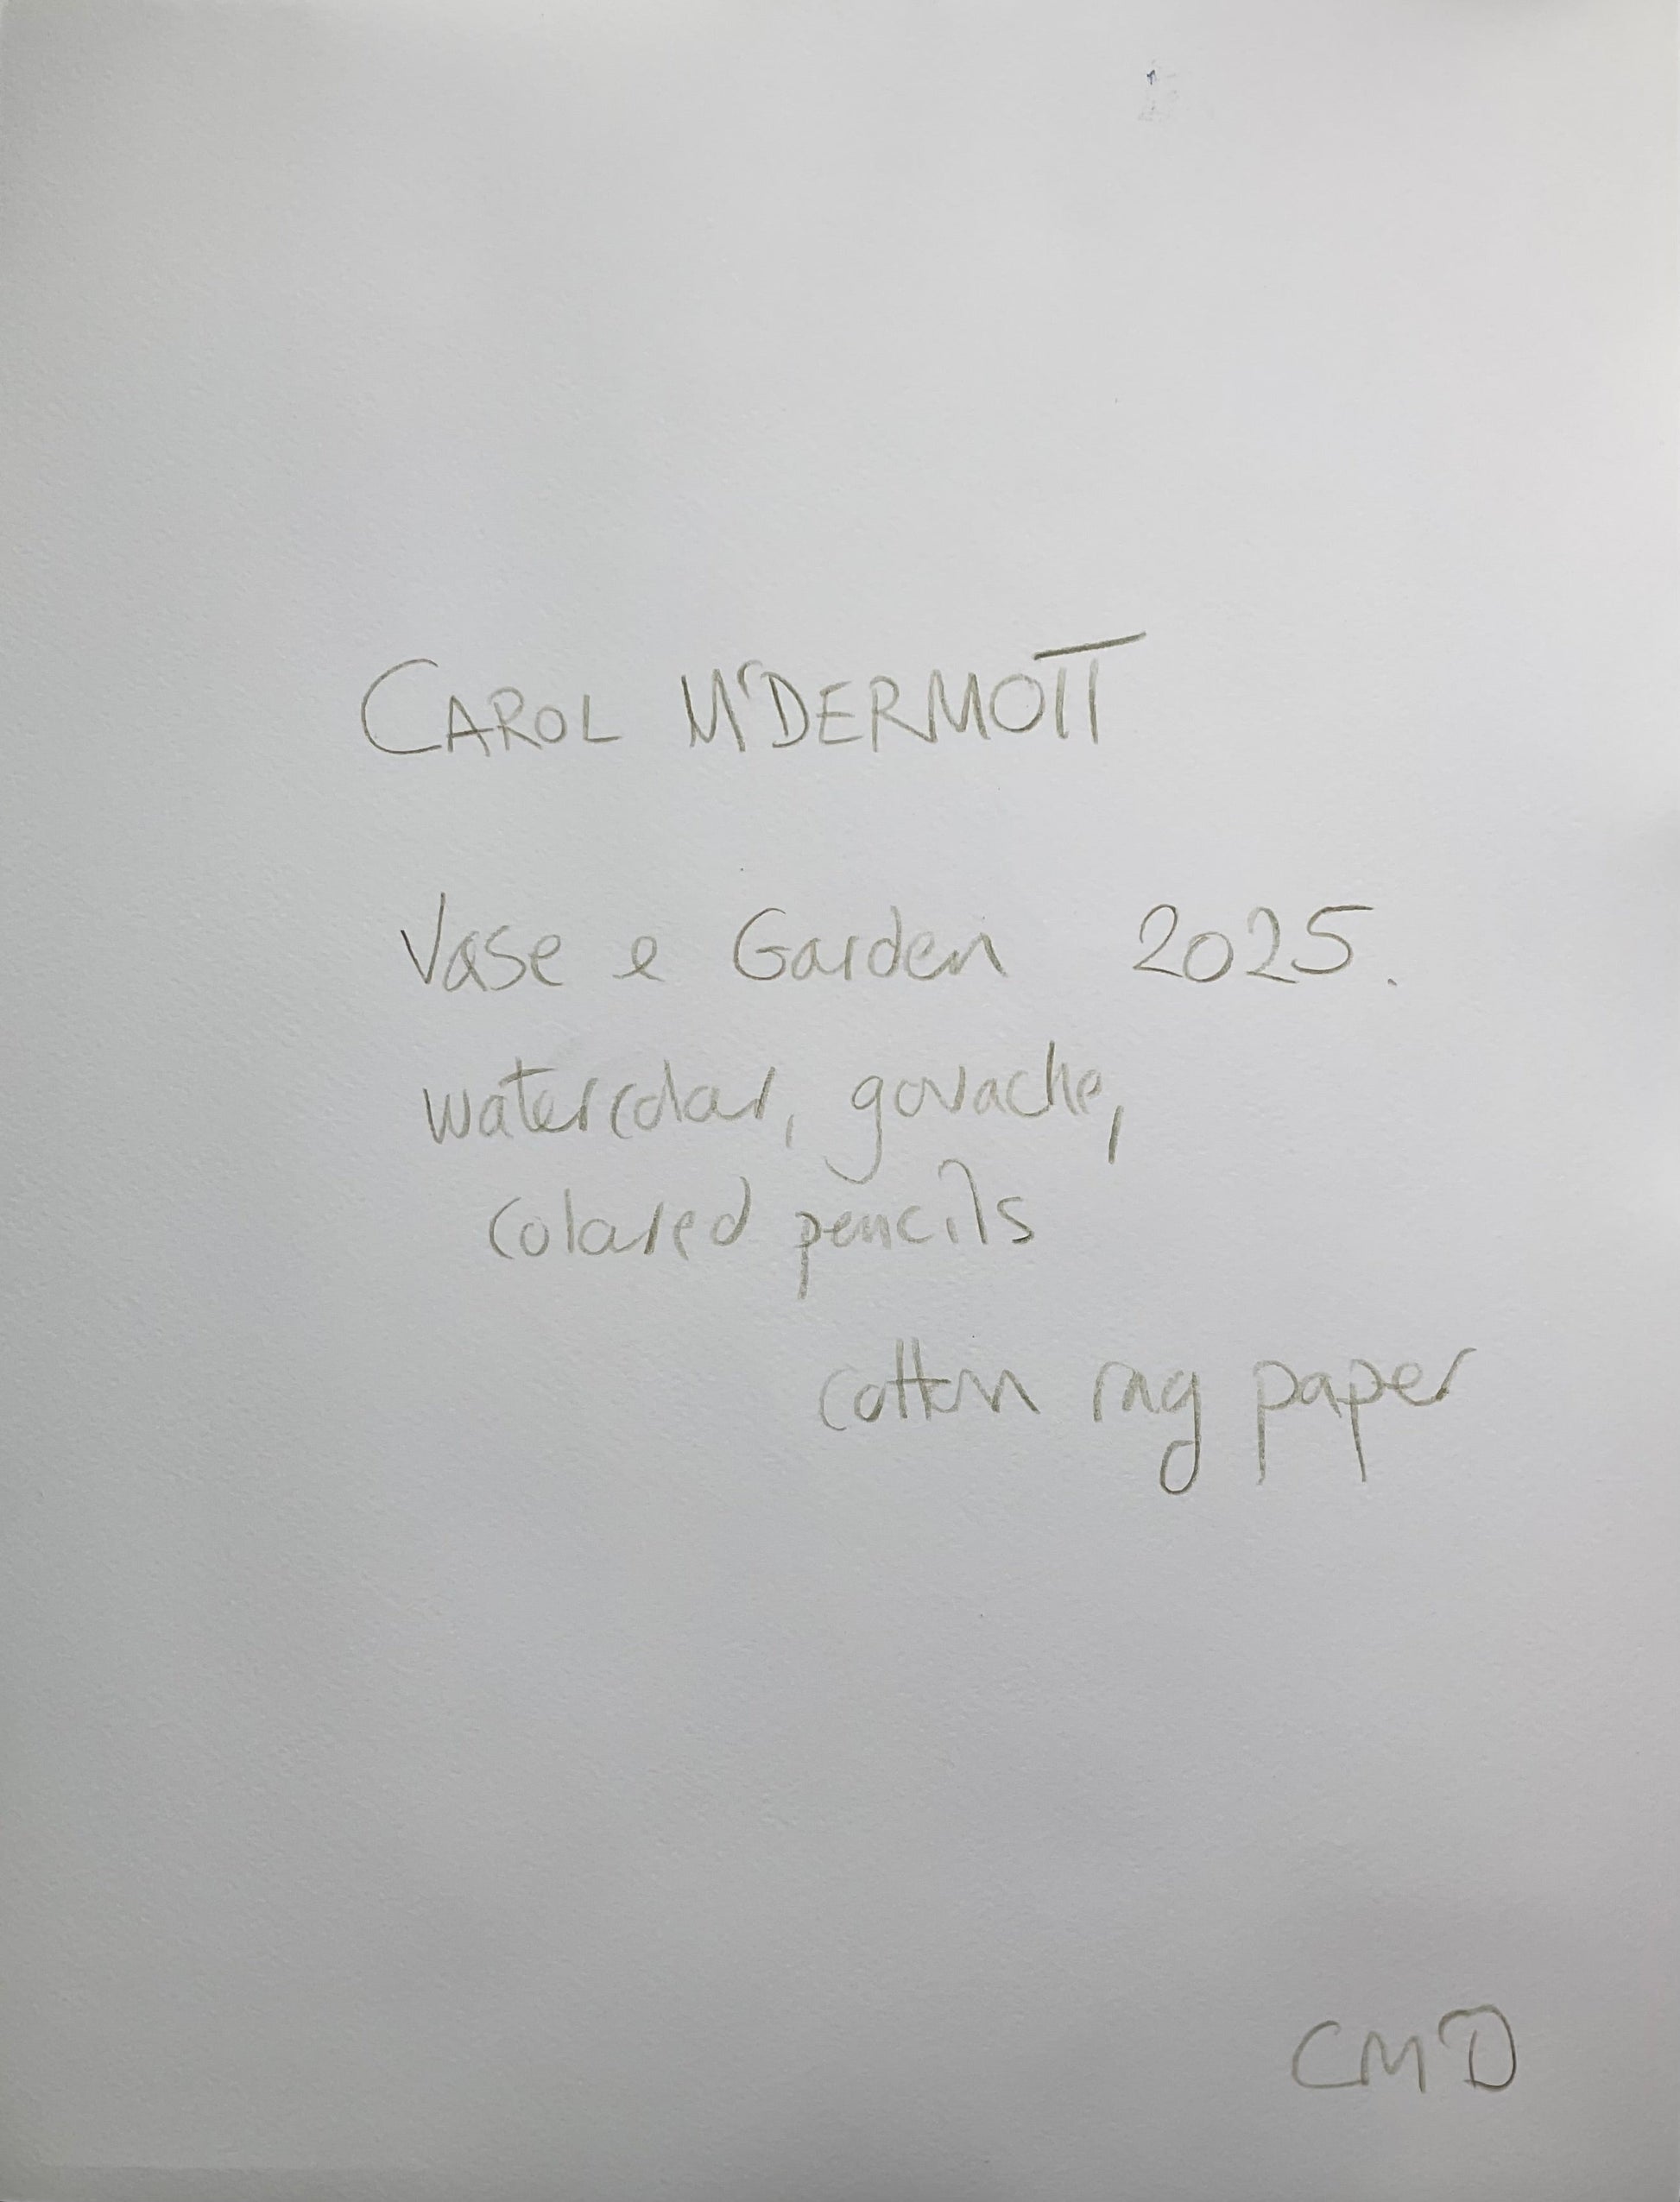 CAROL McDERMOTT
Vase & Garden 2025.
watercolour, gouache,
coloured pencils
cotton rag paper
CMD